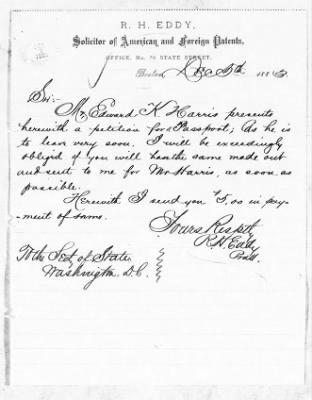 R. H. EDDY,
Solicitor of American and Foreign Patents,
OFFICE, No. 76 STATE STREET,
Boston, Dec 5th 188
Sir:
Mr. Edward K. Harris presents
herewith a petition for a Passport; As he is
to leave very soon. I will be exceedingly
obliged if you will have the same made out
and sent to me for Mr Harris, as soon as
possible.
Herewith I send you $5, as in pay-
ment of same.
Yours Respt
R. H. Eddy
To the Secy of State
Washington D.C.